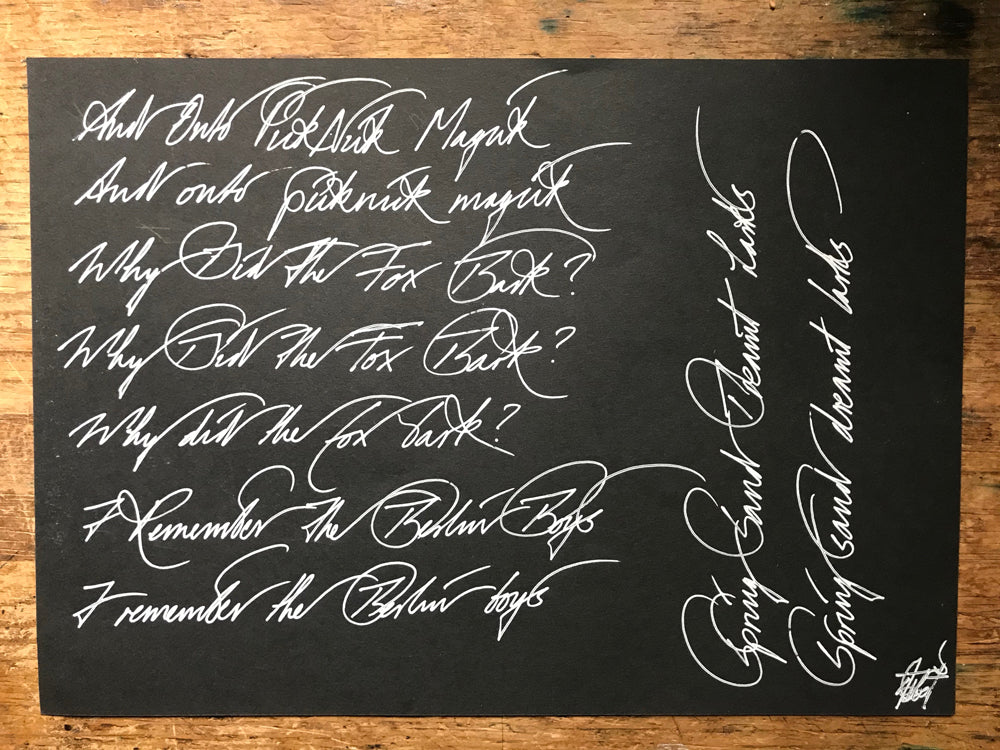 And Onto PickNick Magick
And onto picknick magick
Why Did The Fox Bark?
Why Did The Fox Bark?
Why did the fox bark?
I Remember The Berlin Boys
I remember the Berlin boys
Spring Sand Dreamt Larks
Spring sand dreamt larks